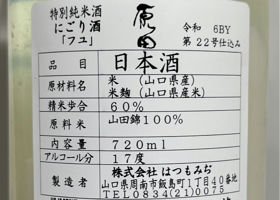 特別純米酒
にごり酒
「フユ」
原田
令和 6BY
第22号仕込み
品目 日本酒
原材料名 米 (山口県産)
米麹 (山口県産米)
精米歩合 60%
原料米 山田錦100%
内容量 720ml
アルコール分 17度
製造者 株式会社 はつもみぢ
山口県周南市飯島町1丁目40番地
TEL0834(21)0075